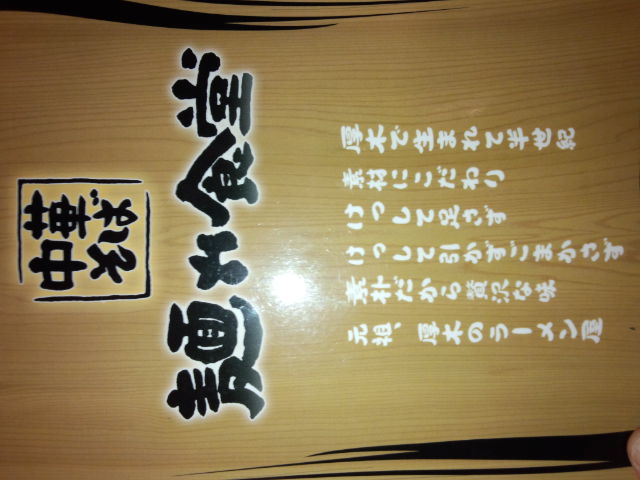 中華
そば
麺や食堂
厚木で生まれて半世紀
素材にこだわり
けつして足さず
けつして引かずごまかさず
素朴だから贅沢な味
元祖、厚木のラーメン屋